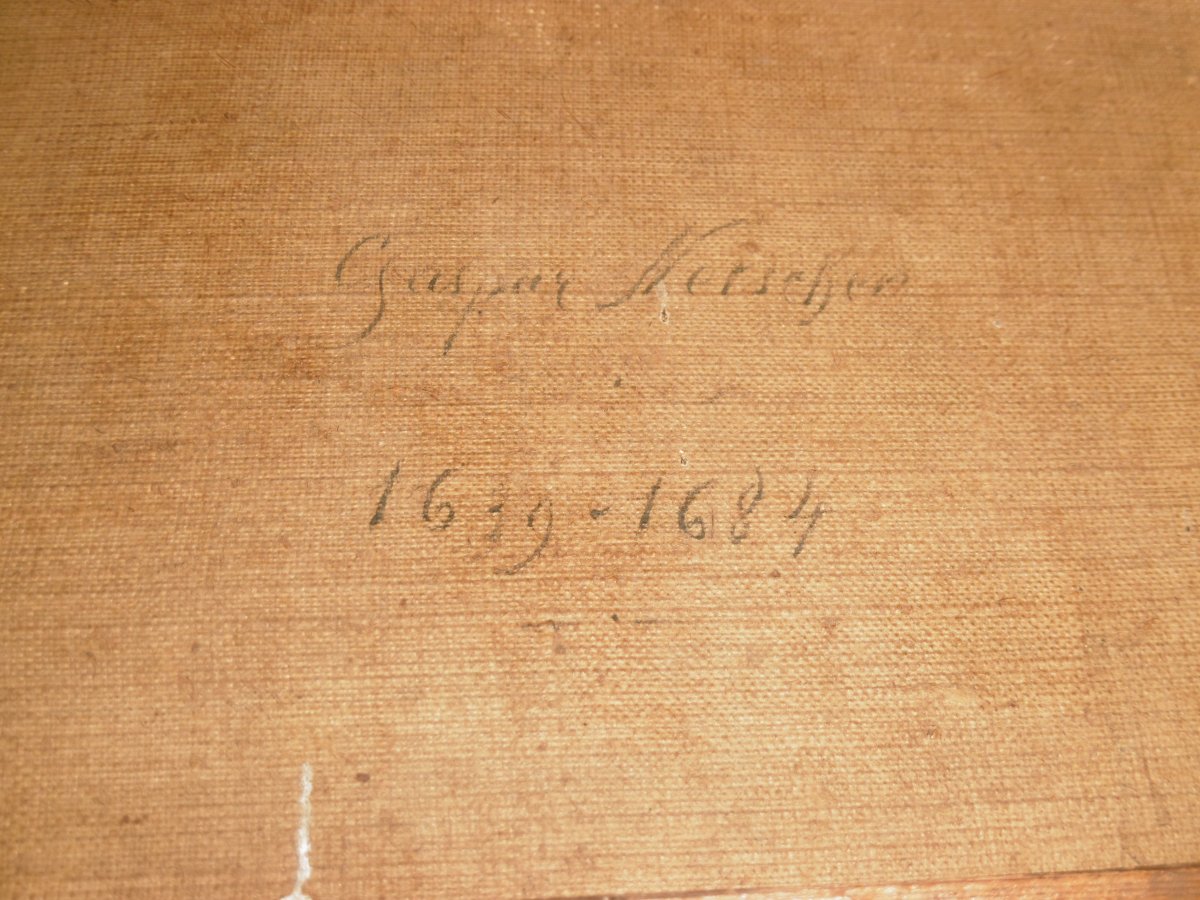 Gaspar Netscher
1639-1684